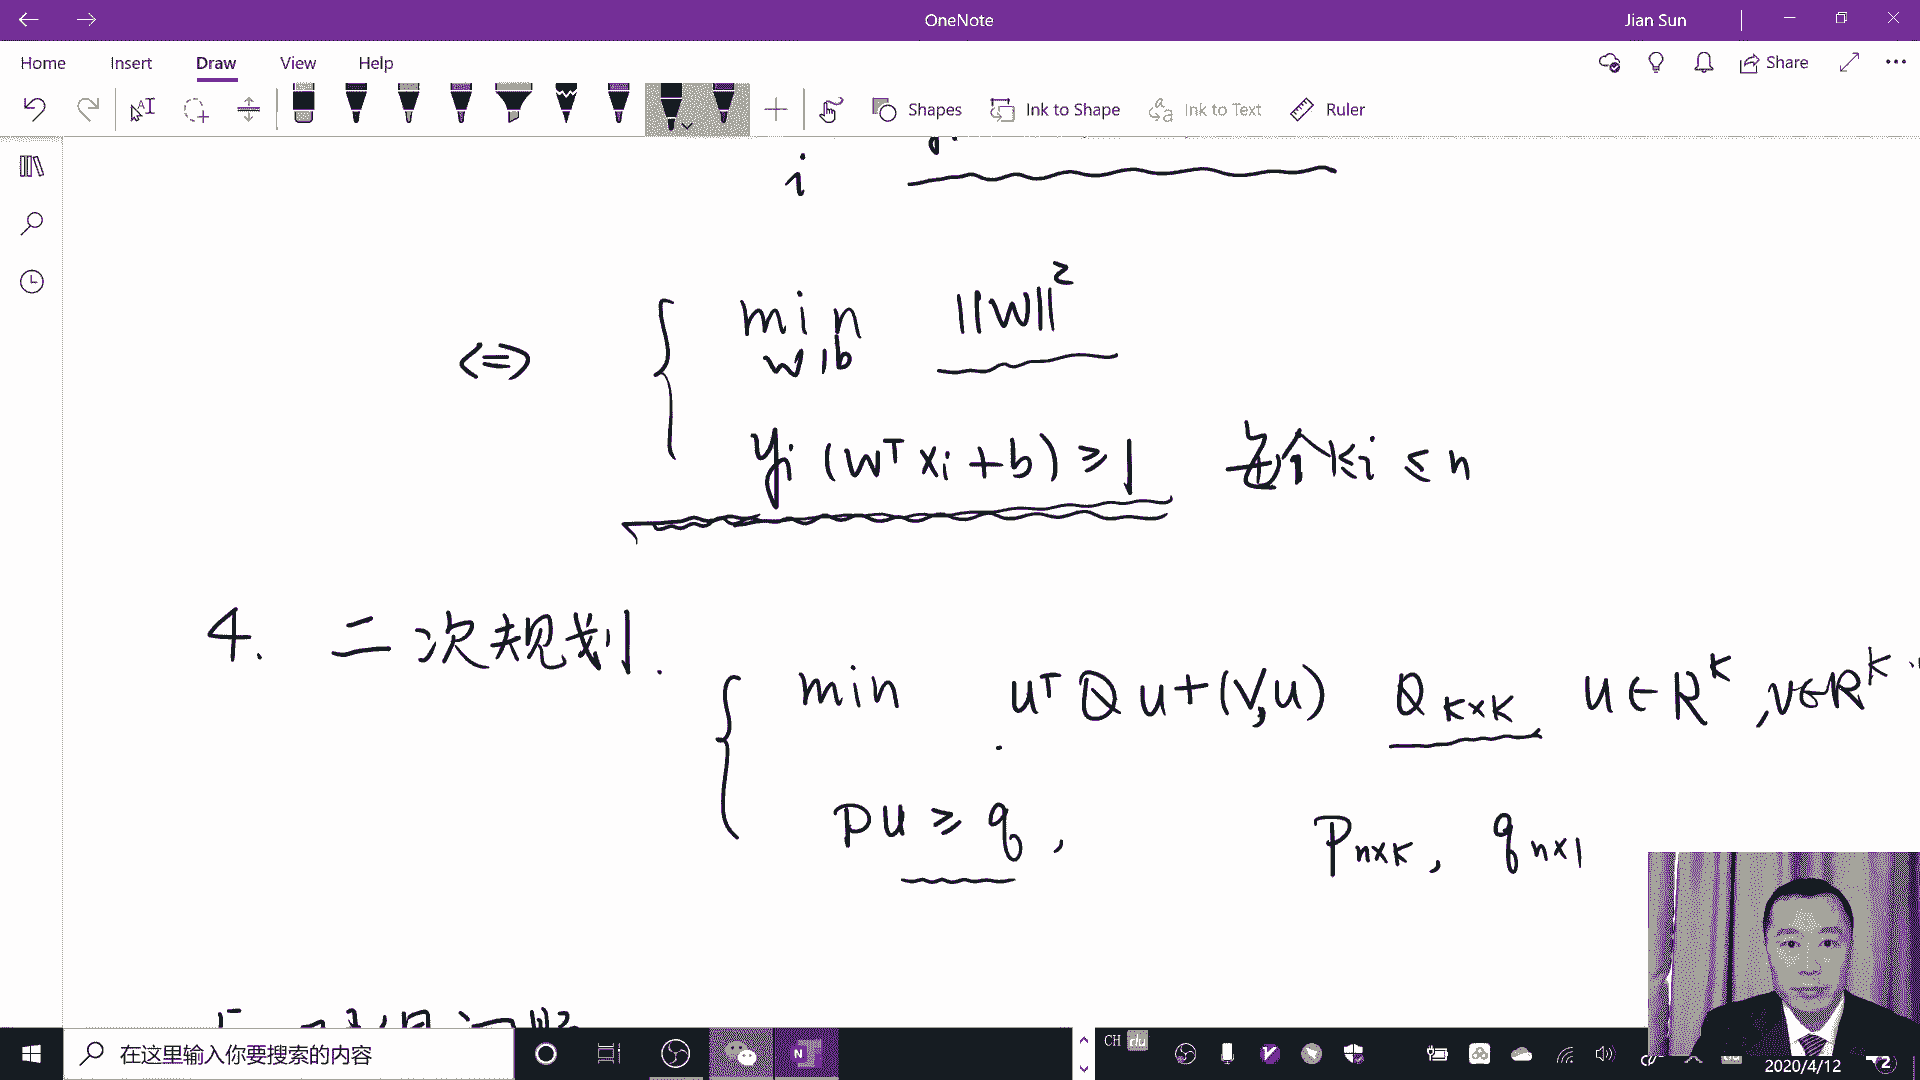 OneNote
Jian Sun
Home Insert Draw View Help
Share
Shapes Ink to Shape Ink to Text Ruler
i
<=> { min ||W||²
w,b
yᵢ (Wᵀxᵢ + b) ≥ 1 每个 1≤i ≤ n
4. 二次规划.
{ min uᵀQu+(V,u) Q K×K u∈R^K , v∈R^K .
Pu ≥ q , P n×K , q n×1
在这里输入你要搜索的内容
CH
2020/4/12
2